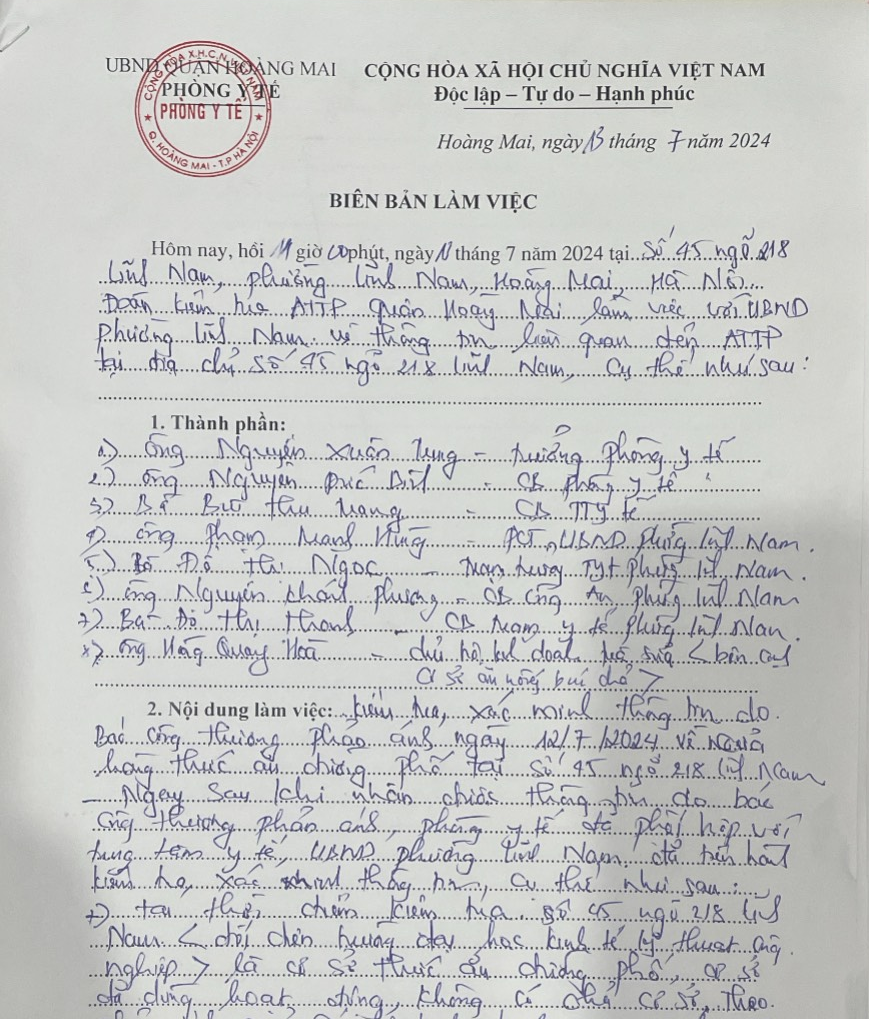 UBND QUẬN HOÀNG MAI
PHÒNG Y TẾ
CỘNG HÒA X.H.C.N VIỆT NAM
PHÒNG Y TẾ
Q. HOÀNG MAI - T.P HÀ NỘI
CỘNG HÒA XÃ HỘI CHỦ NGHĨA VIỆT NAM
Độc lập – Tự do – Hạnh phúc
Hoàng Mai, ngày 13 tháng 7 năm 2024
BIÊN BẢN LÀM VIỆC
Hôm nay, hồi giờ 00 phút, ngày tháng 7 năm 2024 tại số 45 ngõ 218
Lĩnh Nam, phường Lĩnh Nam, Hoàng Mai, Hà Nội
Đoàn kiểm tra ATTP quận Hoàng Mai làm việc với UBND
phường Lĩnh Nam về thông tin liên quan đến ATTP
tại địa chỉ số 45 ngõ 218 Lĩnh Nam, cụ thể như sau:
1. Thành phần:
1) Ông Nguyễn Xuân - trưởng phòng y tế
2) Ông Nguyễn - CB phòng y tế
3) Bà Bùi Thu Trang - CB TTY tế
4) Ông Phạm Mạnh Hùng - PCT UBND phường Lĩnh Nam.
5) Bà Đỗ Thị Ngọc - trạm trưởng TYT phường Lĩnh Nam.
6) Ông Nguyễn Khánh Phương - CB Công An phường Lĩnh Nam
7) Bà Đỗ Thị - CB trạm y tế phường Lĩnh Nam.
8) Ông Quang Hoà - chủ hộ kinh doanh trà sữa < bên cạnh
cơ sở ăn nóng >
2. Nội dung làm việc: kiểm tra, xác minh thông tin do
Báo công thương phản ánh ngày 12/7/2024 về
hàng thức ăn đường phố tại số 45 ngõ 218 Lĩnh Nam
- Ngay sau khi nhận được thông tin do báo
công thương phản ánh, phòng y tế đã phối hợp với
trung tâm y tế, UBND phường Lĩnh Nam đã tiến hành
kiểm tra, xác minh thông tin, cụ thể như sau:
+) tại thời điểm kiểm tra số 45 ngõ 218 Lĩnh
Nam < đối diện trường đại học kinh tế kỹ thuật công
nghiệp > là cơ sở thức ăn đường phố, cơ sở
đã dừng hoạt động, không có chủ cơ sở, theo